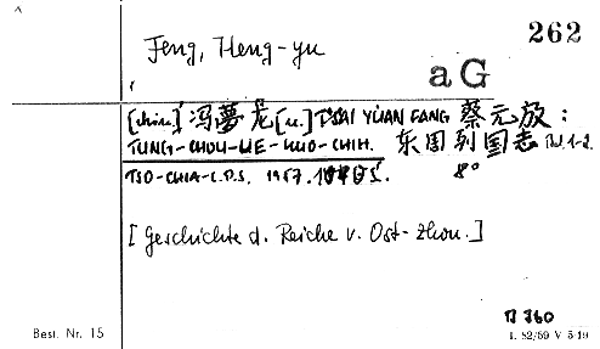 262
Feng, Meng-yu
aG
[chin.] 冯夢龙 [u.] TS'AI YÜAN FANG 蔡元放:
TUNG-CHOU-LIE-KUO-CHIH. 东周列国志 Bd. 1-2.
TSO-CHIA-C.P.S. 1957. 8°
[Geschichte d. Reiche v. Ost-Zhou.]
Best. Nr. 15
I. 82/59 V 5 19